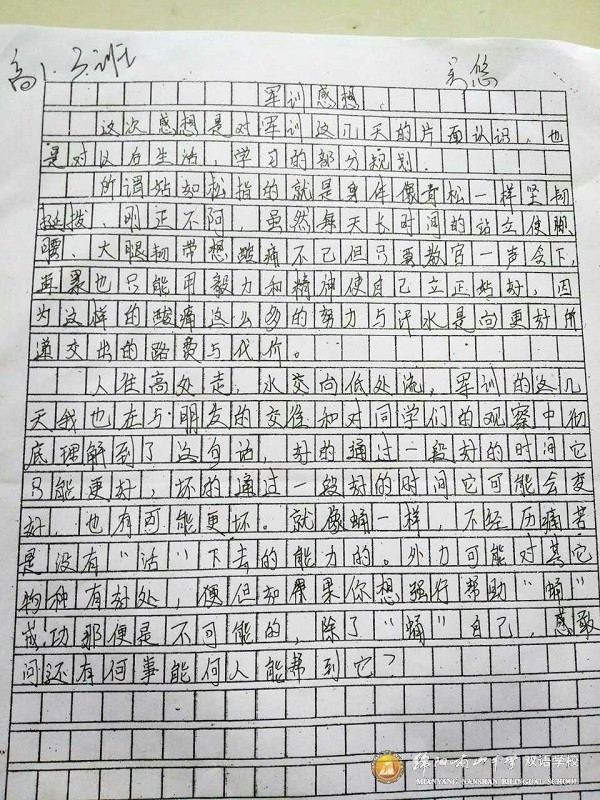 高1.3班 吴悠
军训感想.
这次感想是对军训这几天的片面认识,也
是对以后生活,学习的部分规划.
所谓站如松指的就是身体像青松一样坚韧
挺拨、刚正不阿,虽然每天长时间的站立使脚
腰、大腿韧带想酸痛不已但只要教官一声令下,
再累也只能用毅力和精神使自己立正站好,因
为这样的酸痛这么多的努力与汗水是向更好所
递交出的路费与代价。
人往高处走,水交向低处流,军训的这几
天我也在与朋友的交往和对同学们的观察中彻
底理解到了这句话,好的通过一段好的时间它
只能更好,坏的通过一段好的时间它可能会变
好,也有可能更坏。就像蛹一样,不经历痛苦
是没有“活”下去的能力的。外力可能对其它
物种有好处,便但如果你想强行帮助“蛹”
成功那便是不可能的,除了“蛹”自己,感敢
问还有何事能何人能帮到它?
绵阳南山中学 双语学校
MIANYANG NANSHAN BILINGUAL SCHOOL